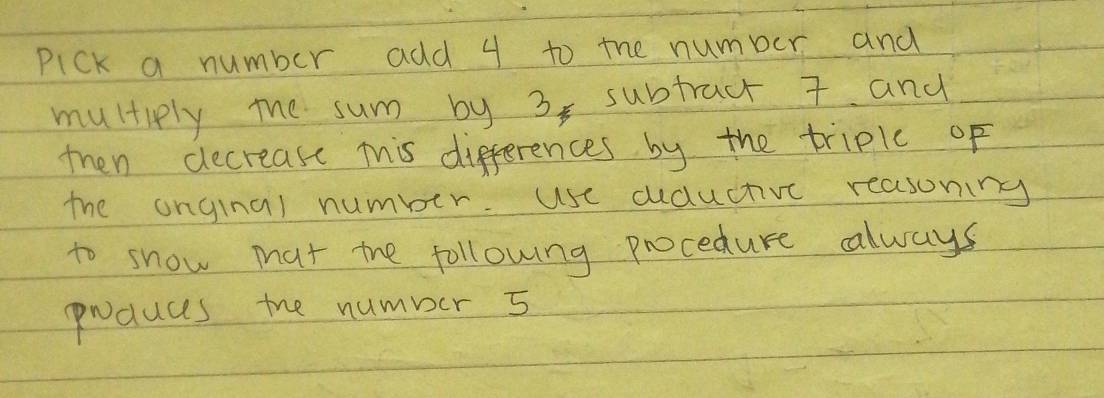 Pick a number add 4 to the number and
multiply the sum by 3, subtract 7 and
then decrease this differences by the triple of
the original number. Use deductive reasoning
to show that the following procedure always
produces the number 5